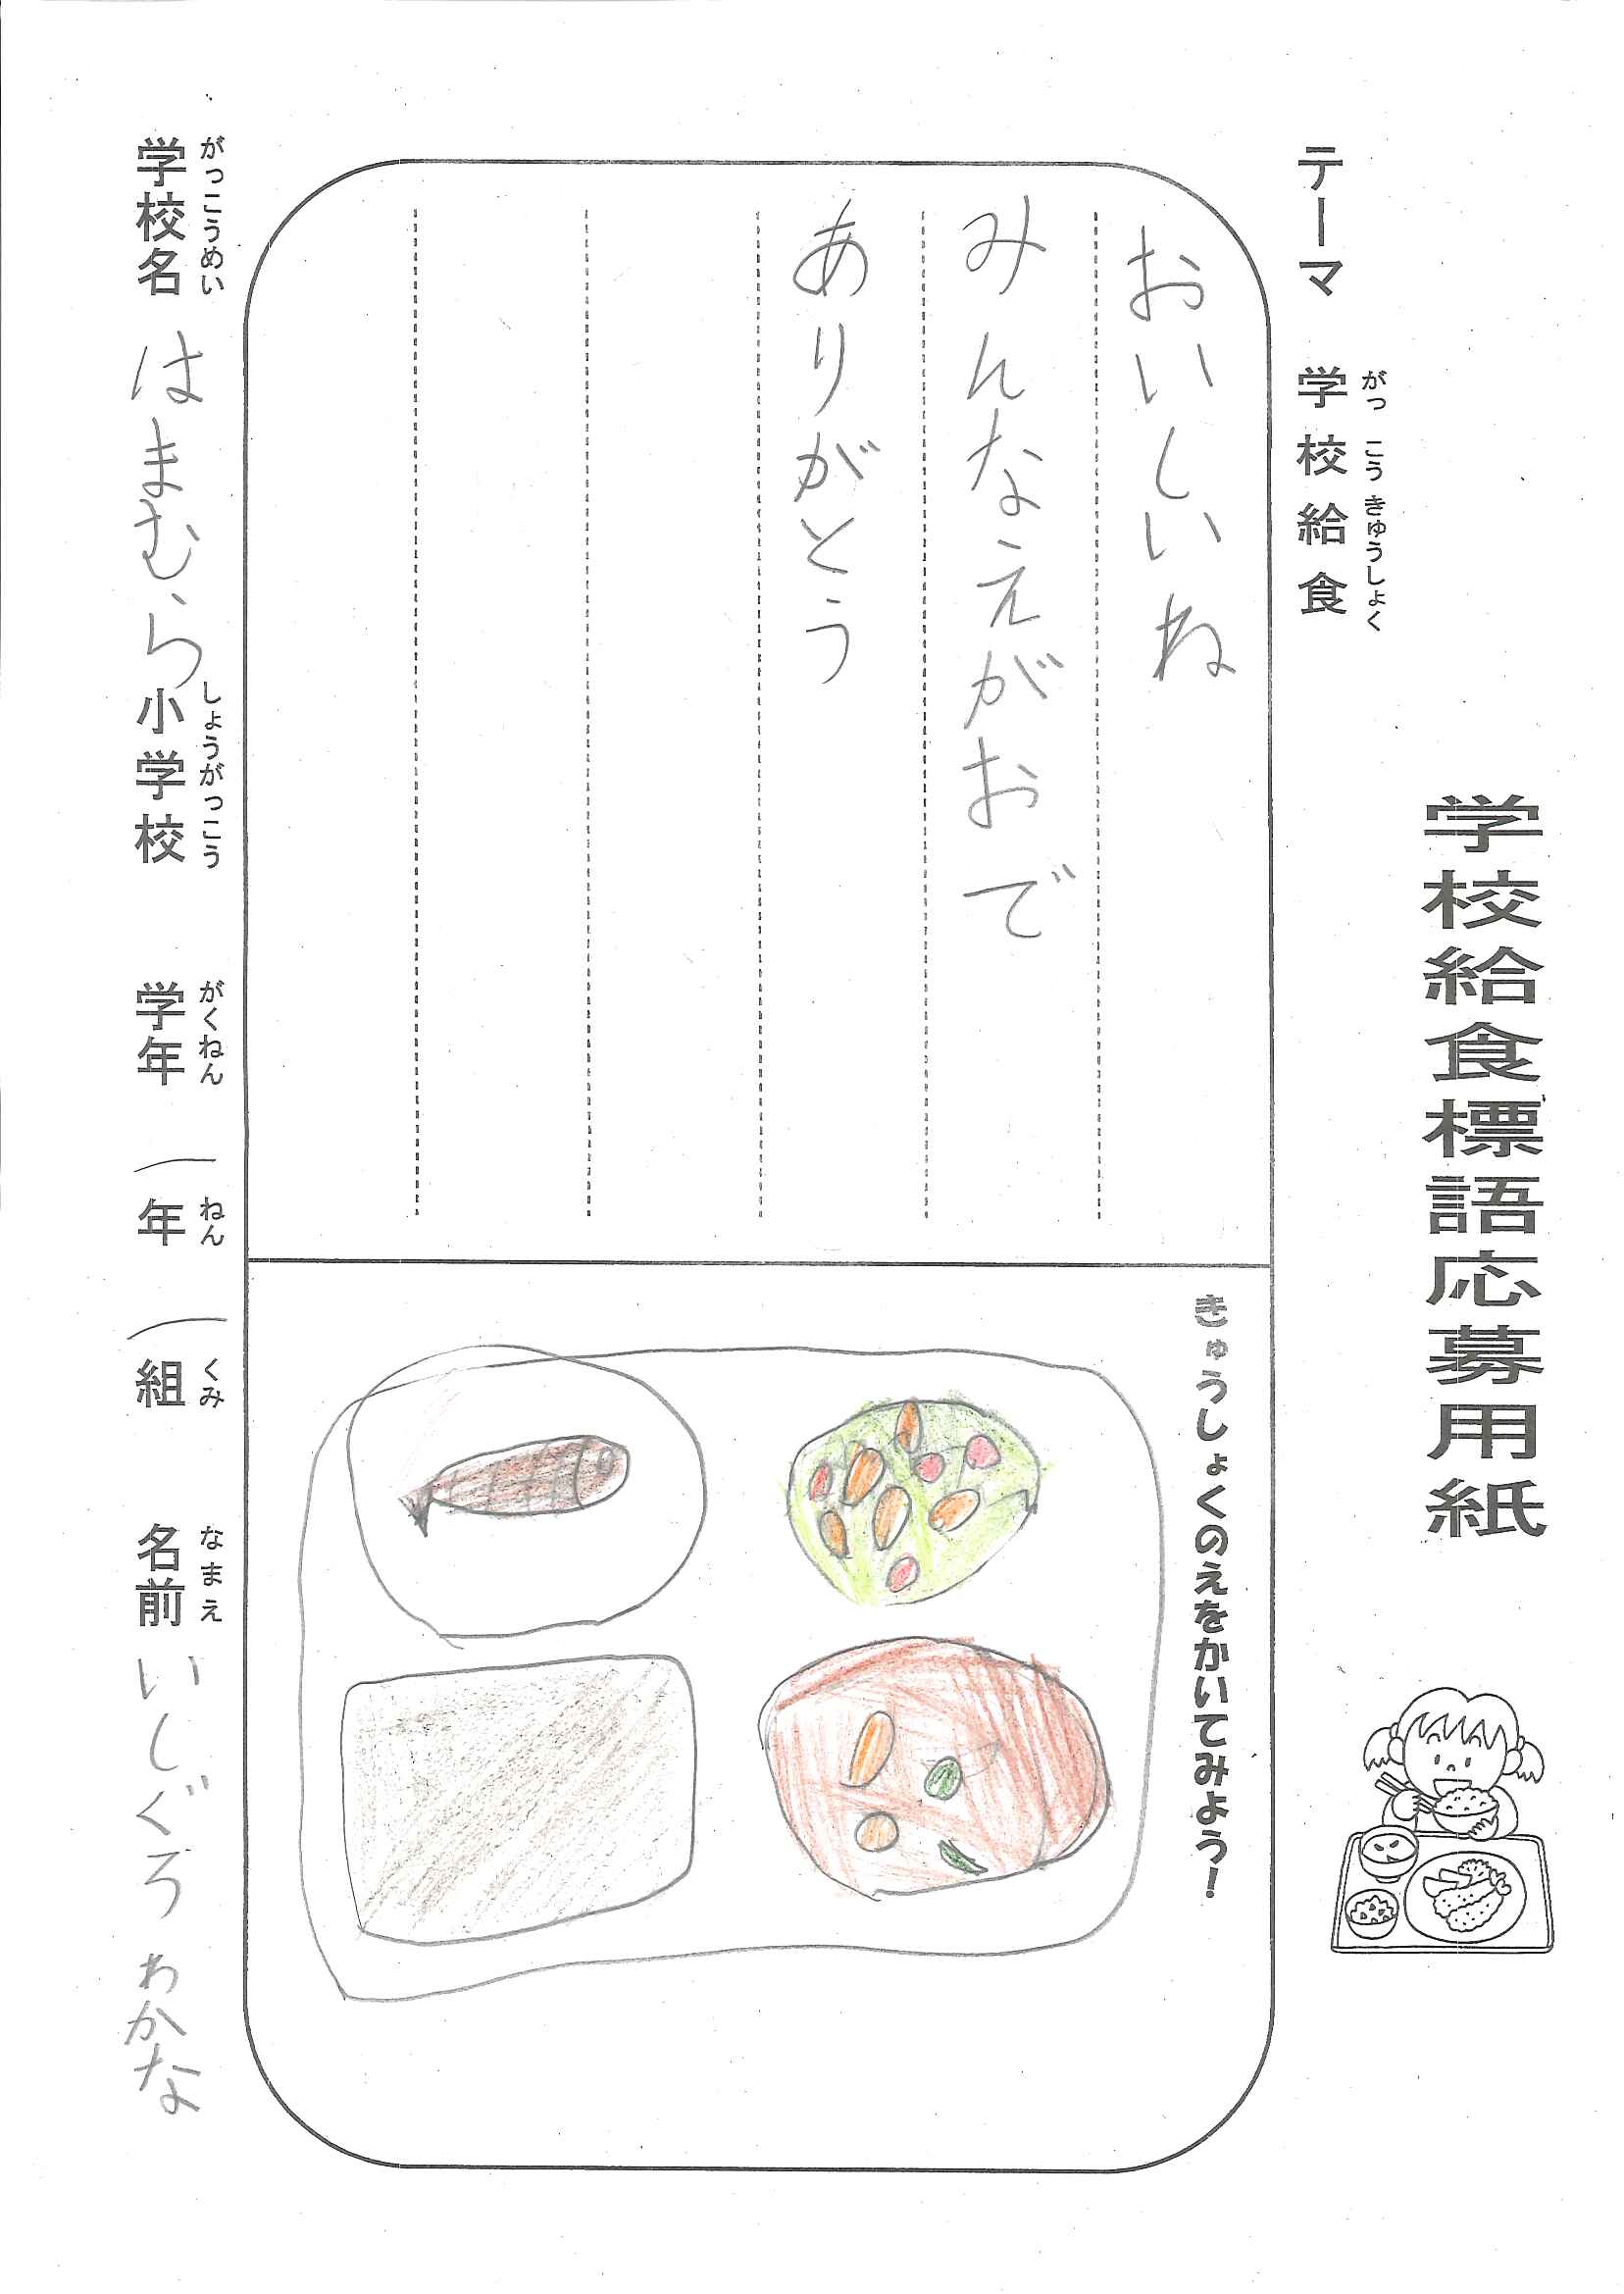 学校給食標語応募用紙
テーマ 学校給食
がっこうきゅうしょく
おいしいね
みんなえがおで
ありがとう
きゅうしょくのえをかいてみよう!
がっこうめい しょうがっこう がくねん ねん くみ なまえ
学校名 はまむら小学校 学年 一年 一組 名前 いしぐろ わかな